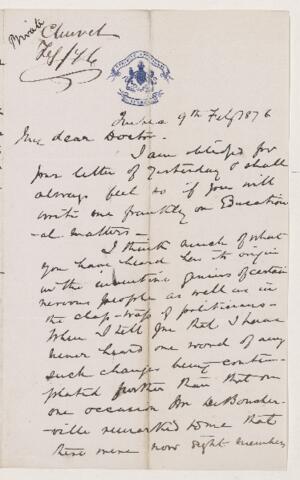 Private
Feby/76
Quebec 9th Feby 1876
My dear Doctor.
I am obliged for
your letter of yesterday & shall
always feel so if you will
write me frankly on Education
-al matters -
I think much of what
you have heard has its origin
in the inventive genius of certain
nervous people as well as in
the clap-trap of politicians -
When I tell you that I have
never heard one word of any
such changes being contem-
plated further than that on
one occasion Mr DeBoucher-
ville remarked to me that
there were now eight members